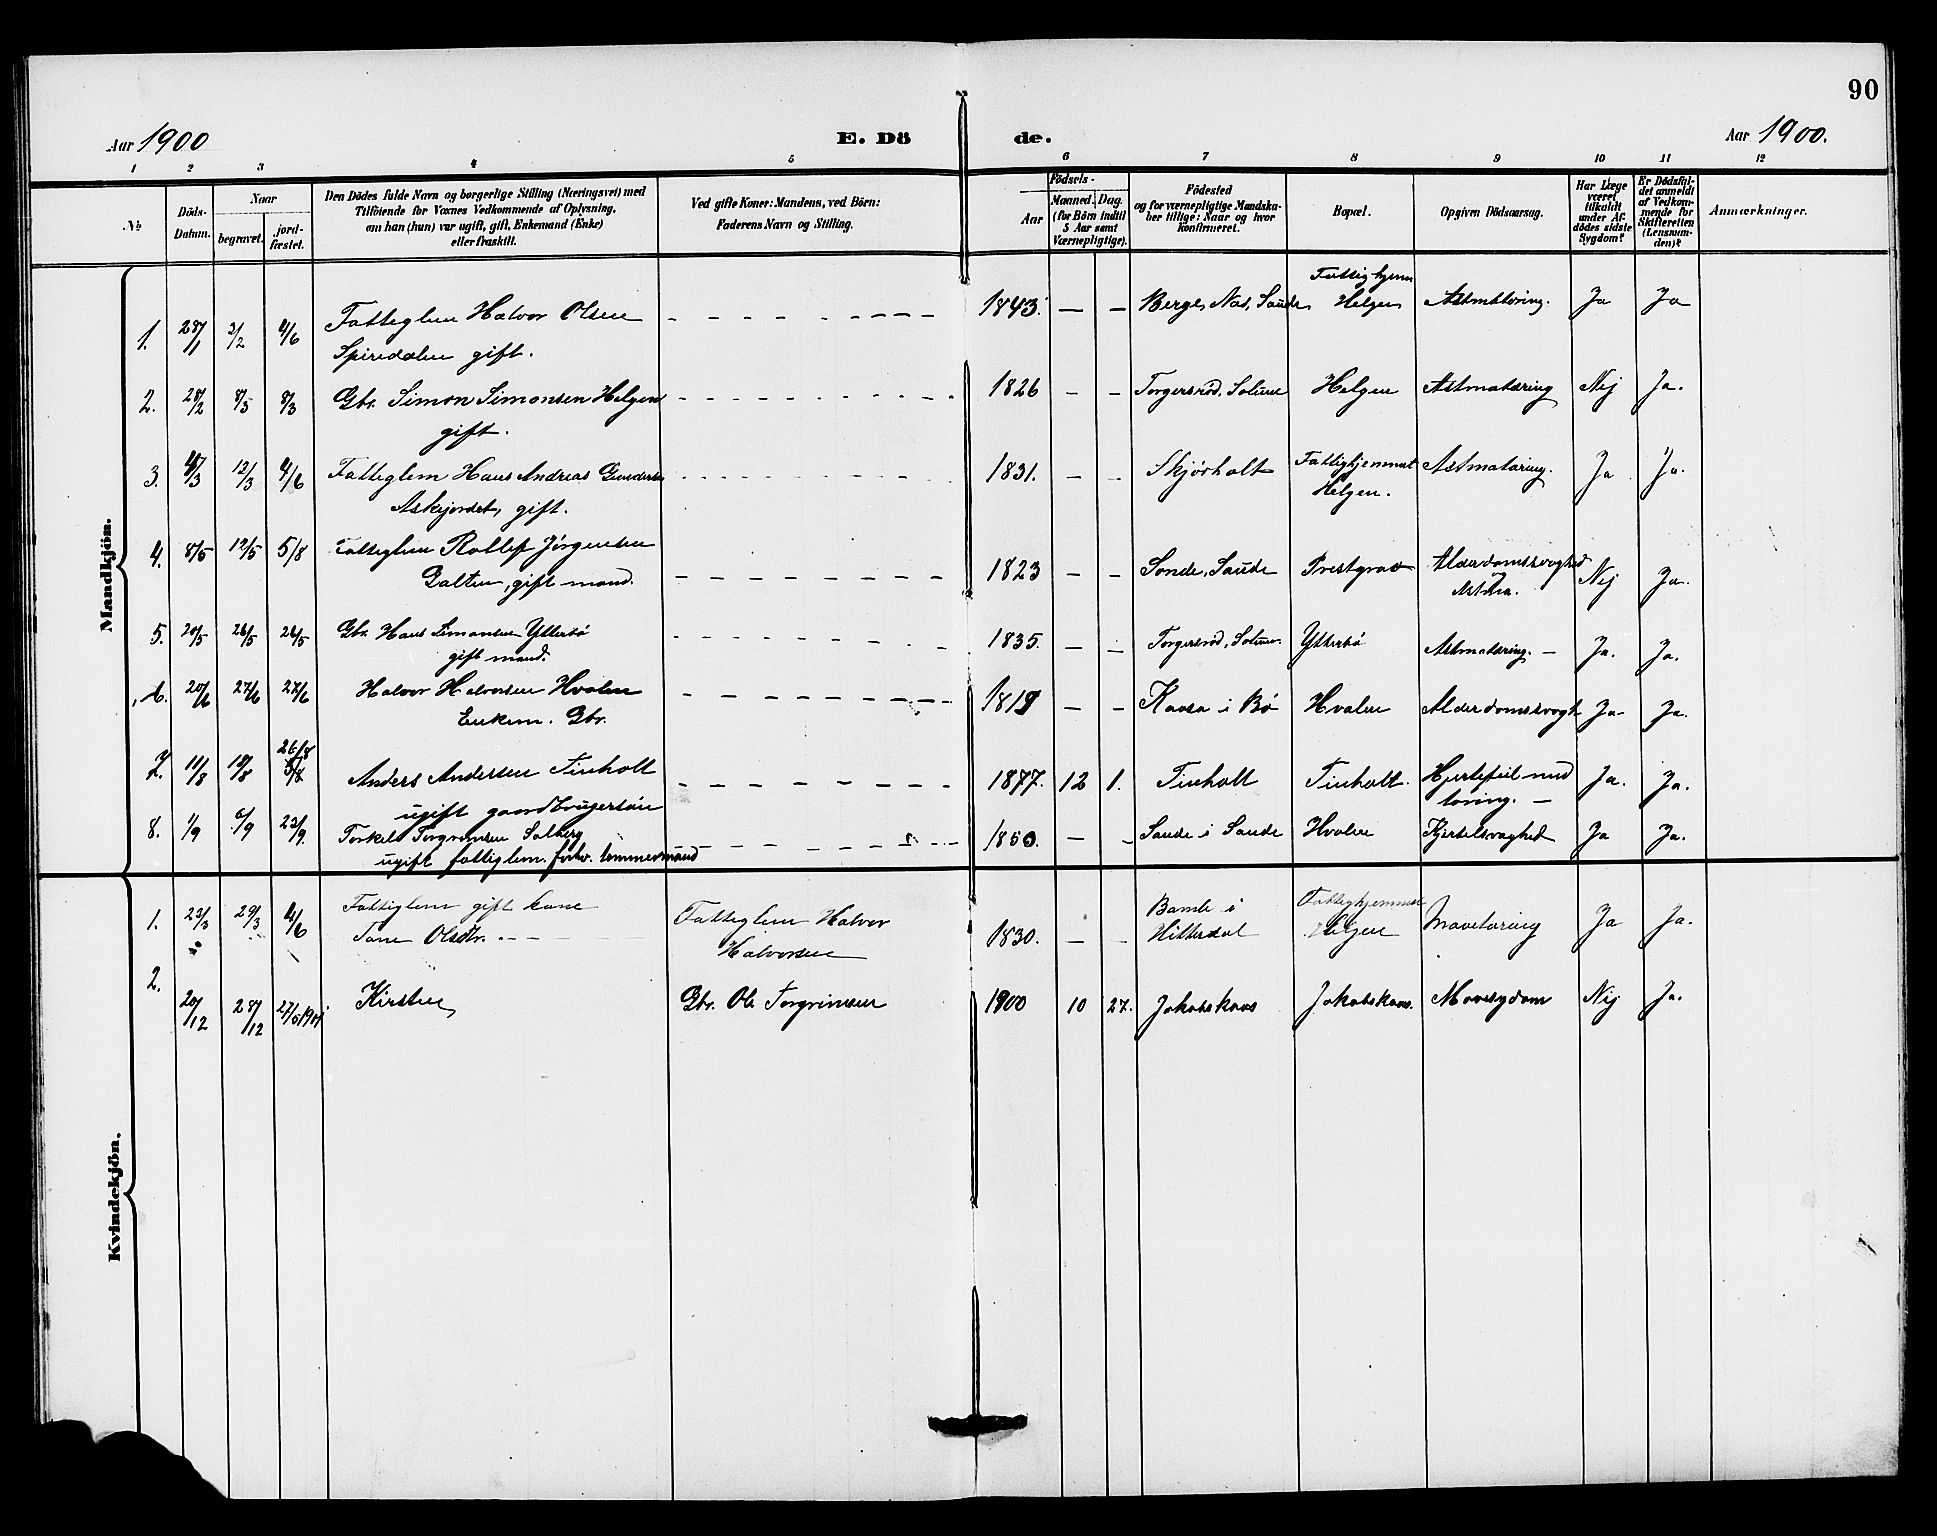 90
Aar 1900
E. Dö de.
Aar 1900.
1 2 3 4 5 6 7 8 9 10 11 12
No
Döds-Datum.
Naar
begravet.
jord-fæstet.
Den Dödes fulde Navn og borgerlige Stilling (Næringsvei) med
Tilföiende for Voxnes Vedkommende af Oplysning,
om han (hun) var ugift, gift, Enkemand (Enke)
eller fraskilt.
Ved gifte Koner: Mandens, ved Börn:
Faderens Navn og Stilling.
Födsels-
Aar
Maaned. Dag.
(for Börn indtil
5 Aar samt
Værnepligtige).
Födested
og for værnepligtige Mandska-
ber tillige: Naar og hvor
konfirmeret.
Bopæl.
Opgiven Dödsaarsag.
Har Læge
været
tilkaldt
under Af-
dödes sidste
Sygdom?
Er Dödsfal-
det anmeldt
af Vedkom-
mende for
Skifteretten
(Lensman-
den)?
Anmærkninger.
Mandkjön.
1. 28/1 3/2 4/6 Fatteglem Halvor Olsen 1843. — — Berge, Nas, Saude Fattighjem Helgen Ja Ja
Spiredalen gift.
2. 28/2 8/3 8/3 Gbr. Simon Simonsen Helgen 1826 — — Torgersrød, Solum Helgen Astmatæring Nej Ja.
gift.
3. 12/3 4/6 Fatteglem Hans Andreas Gundersen 1831. — — Skjørholt Fattighjemmet Helgen. Astmatæring. Ja Ja.
Askejordet, gift.
4. 8/5 12/5 5/8 Fatteglem Rollef Jörgensen 1823 — — Sonde, Saude Prestgrav Alderdomssvaghed Nej Ja.
Galten, gift mand.
5. 20/5 26/5 26/5 Gbr. Hans Simonsen Ytterbö 1835. — — Torgersrød, Solum Ytterbö Astmatæring. — Ja. Ja.
gift mand.
6. 20/6 27/6 27/6 Halvor Halvorsen Hvalen 1819 — — Kaasa i Bö Hvalen Alderdomssvagh Ja Ja.
Enkem. Gbr.
7. 11/8 18/8 26/8 Anders Andersen Tinholt 1877. 12 1. Tinholt Tinholt. Hjertefeil med tæring. — Ja. Ja.
ugift gaardbrugersön
8. 1/9 6/9 23/9. Torkel Torgrimsen Solberg 1850 — — Saude i Saude Hvalen Kjertelsvaghed Ja Ja.
ugift fattiglem. forhv. tømmermand
Kvindekjön.
1. 23/3 29/3 4/6 Fattiglem gift kone Fatteglem Halvor 1830. — — Bamle i Hitterdal Fattighjemmet Helgen Mavetæring Ja Ja.
Tone Olsdtr. Halvorsen
2. 20/12 28/12 27/5 1901 Kirsten Gbr. Ole Torgrimsen 1900 10 27. Jakobskaas Jakobskaas. Mavesygdom Nej Ja.